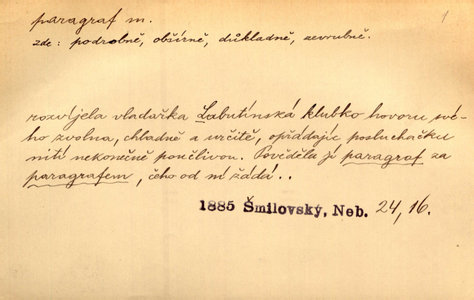 paragraf m.
1
zde: podrobně, obšírně, důkladně, nevrubně.
rozvíjela vladařka Labutínská klubko hovoru své-
ho zvolna, chladně a určitě, opřádajíc posluchačku
nití nekonečně poučlivou. Pověděla jí paragraf za
paragrafem, čeho od ní žádá..
1885 Šmilovský, Neb. 24, 16.